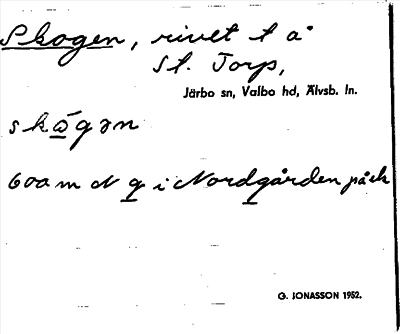 Skogen, rivet t å
St. Torp,
Järbo sn, Valbo hd, Älvsb. ln.
skógən
600 m N g i Nordgården på ek
G. JONASSON 1952.